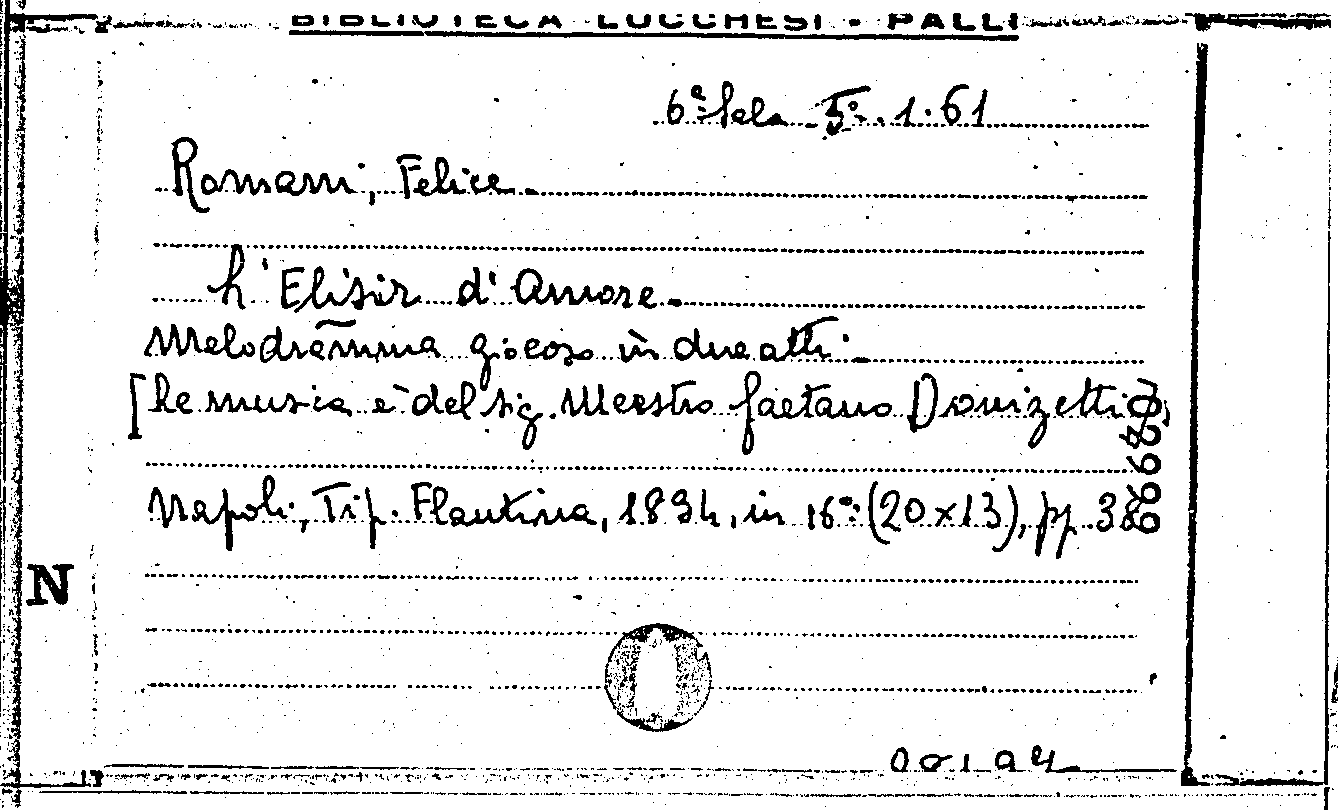 BIBLIOTECA LUCCHESI - PALLI
6ª Sala 5º. 1. 61
Romani, Felice.
L'Elisir d'Amore.
Melodramma giocoso in due atti.
[La musica è del sig. Maestro Gaetano Donizetti]
Napoli, Tip. Flautina, 1834, in 16º: (20 x 13), pp. 38
N